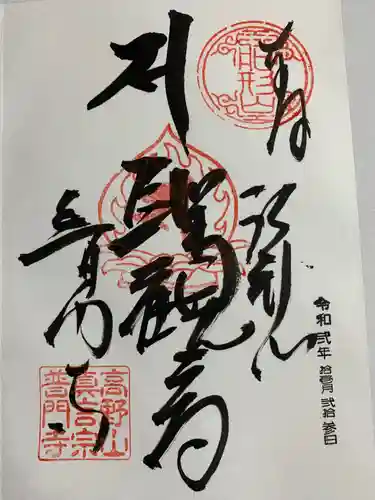 奉拝
聖観音
普門寺
令和弐年 拾壱月 弐拾参日
高野山
真言宗
普門寺